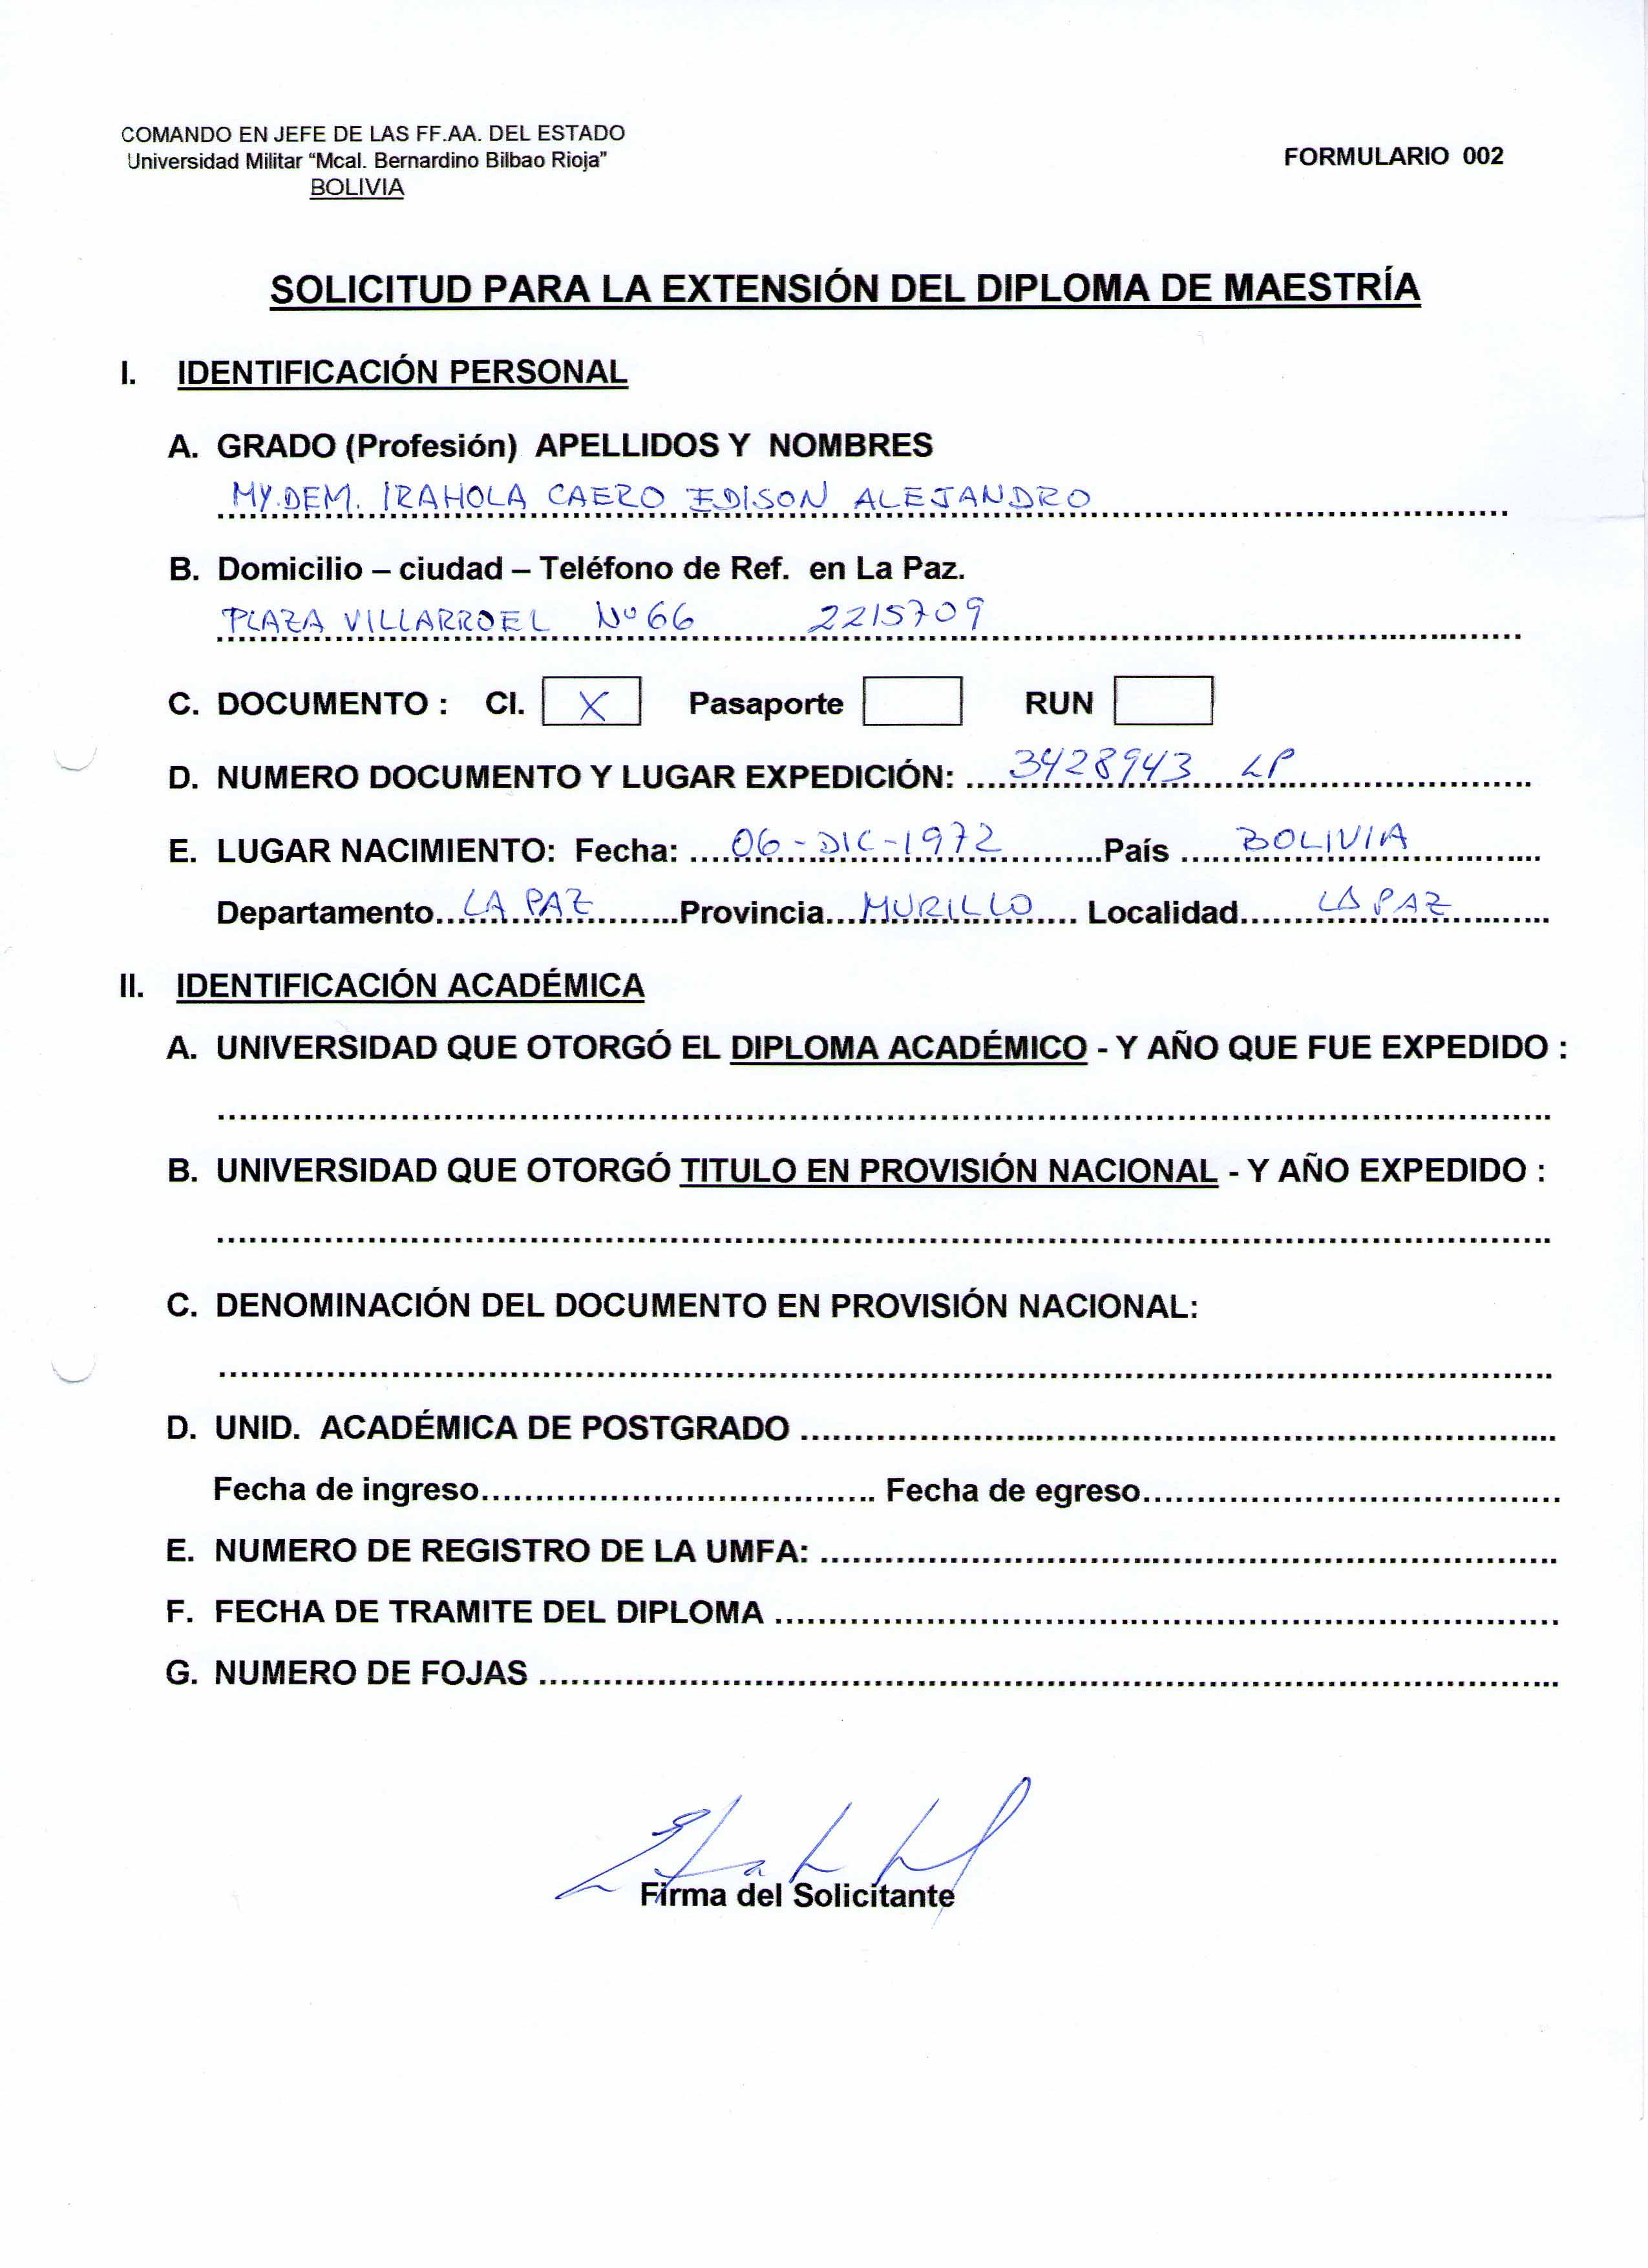 COMANDO EN JEFE DE LAS FF.AA. DEL ESTADO
Universidad Militar “Mcal. Bernardino Bilbao Rioja”
BOLIVIA
FORMULARIO 002
SOLICITUD PARA LA EXTENSIÓN DEL DIPLOMA DE MAESTRÍA
I. IDENTIFICACIÓN PERSONAL
A. GRADO (Profesión) APELLIDOS Y NOMBRES
MY.DEM. IRAHOLA CAERO EDISON ALEJANDRO
B. Domicilio – ciudad – Teléfono de Ref. en La Paz.
PLAZA VILLARROEL Nº 66 2215709
C. DOCUMENTO : CI. X Pasaporte RUN
D. NUMERO DOCUMENTO Y LUGAR EXPEDICIÓN: 3428943 LP
E. LUGAR NACIMIENTO: Fecha: 06-DIC-1972 País BOLIVIA
Departamento LA PAZ Provincia MURILLO Localidad LA PAZ
II. IDENTIFICACIÓN ACADÉMICA
A. UNIVERSIDAD QUE OTORGÓ EL DIPLOMA ACADÉMICO - Y AÑO QUE FUE EXPEDIDO :
B. UNIVERSIDAD QUE OTORGÓ TITULO EN PROVISIÓN NACIONAL - Y AÑO EXPEDIDO :
C. DENOMINACIÓN DEL DOCUMENTO EN PROVISIÓN NACIONAL:
D. UNID. ACADÉMICA DE POSTGRADO
Fecha de ingreso Fecha de egreso
E. NUMERO DE REGISTRO DE LA UMFA:
F. FECHA DE TRAMITE DEL DIPLOMA
G. NUMERO DE FOJAS
Firma del Solicitante